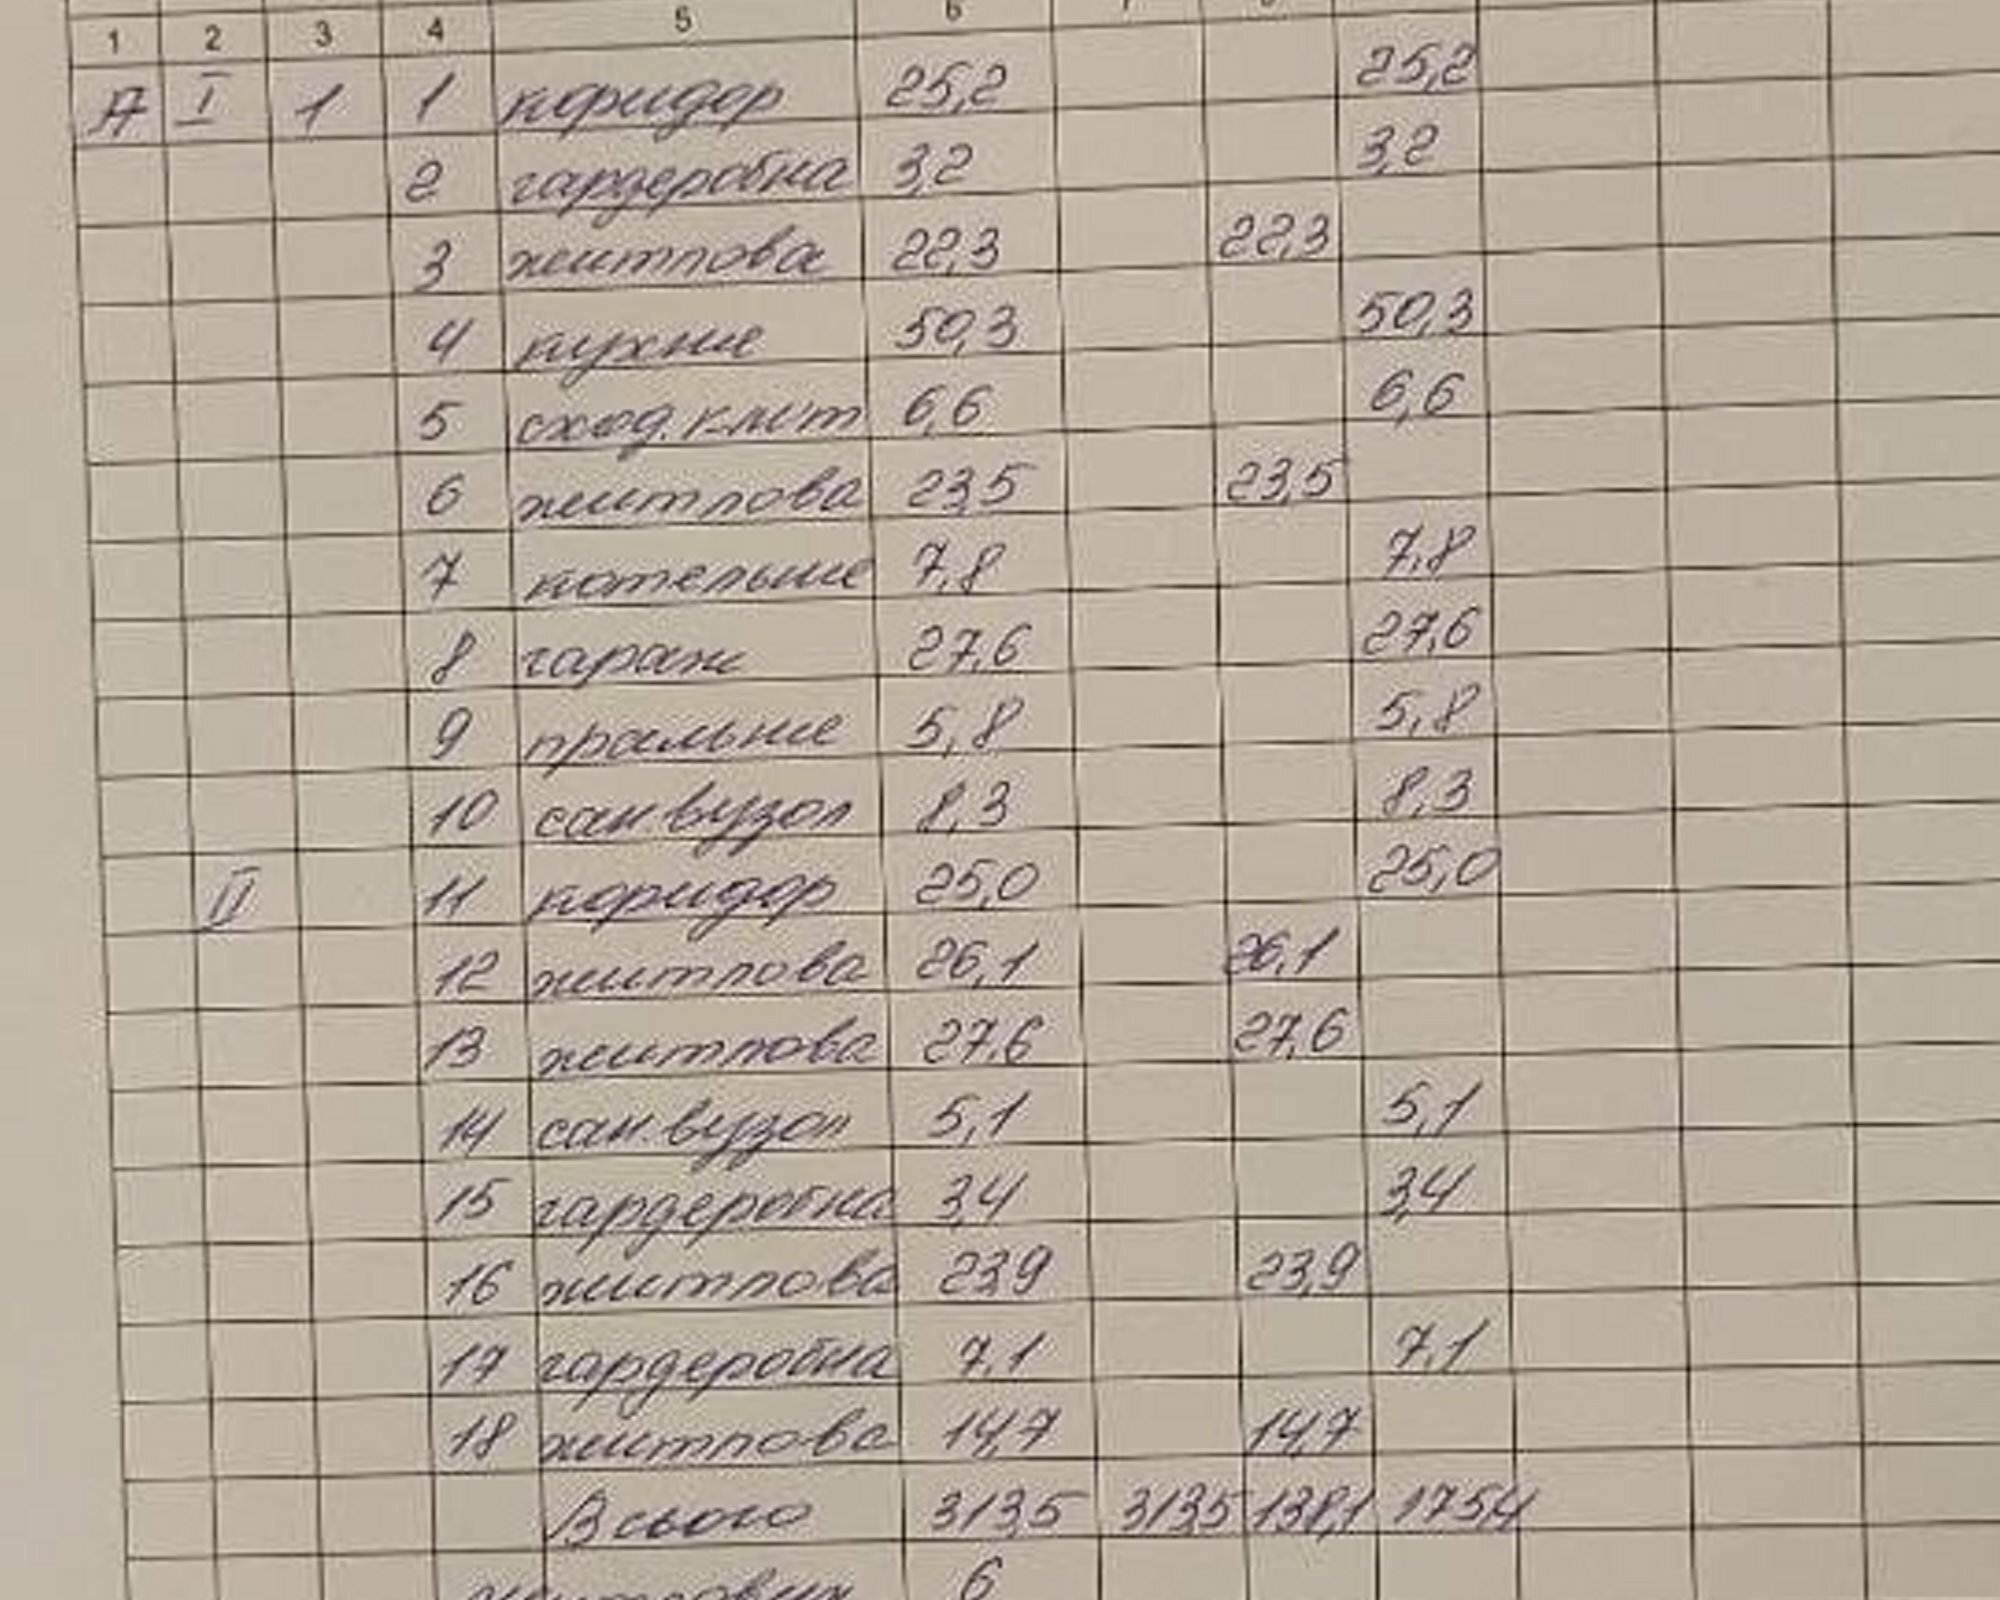 1 2 3 4 5 6
А I 1 1 коридор 25,2 25,2
2 гардеробна 3,2 3,2
3 житлова 22,3 22,3
4 кухня 50,3 50,3
5 сход. кліт 6,6 6,6
6 житлова 23,5 23,5
7 котельня 7,8 7,8
8 гараж 27,6 27,6
9 пральня 5,8 5,8
10 сан.вузол 8,3 8,3
II 11 коридор 25,0 25,0
12 житлова 26,1 26,1
13 житлова 27,6 27,6
14 сан.вузол 5,1 5,1
15 гардеробна 3,4 3,4
16 житлова 23,9 23,9
17 гардеробна 7,1 7,1
18 житлова 14,7 14,7
Всього 313,5 313,5 138,1 175,4
житлових 6